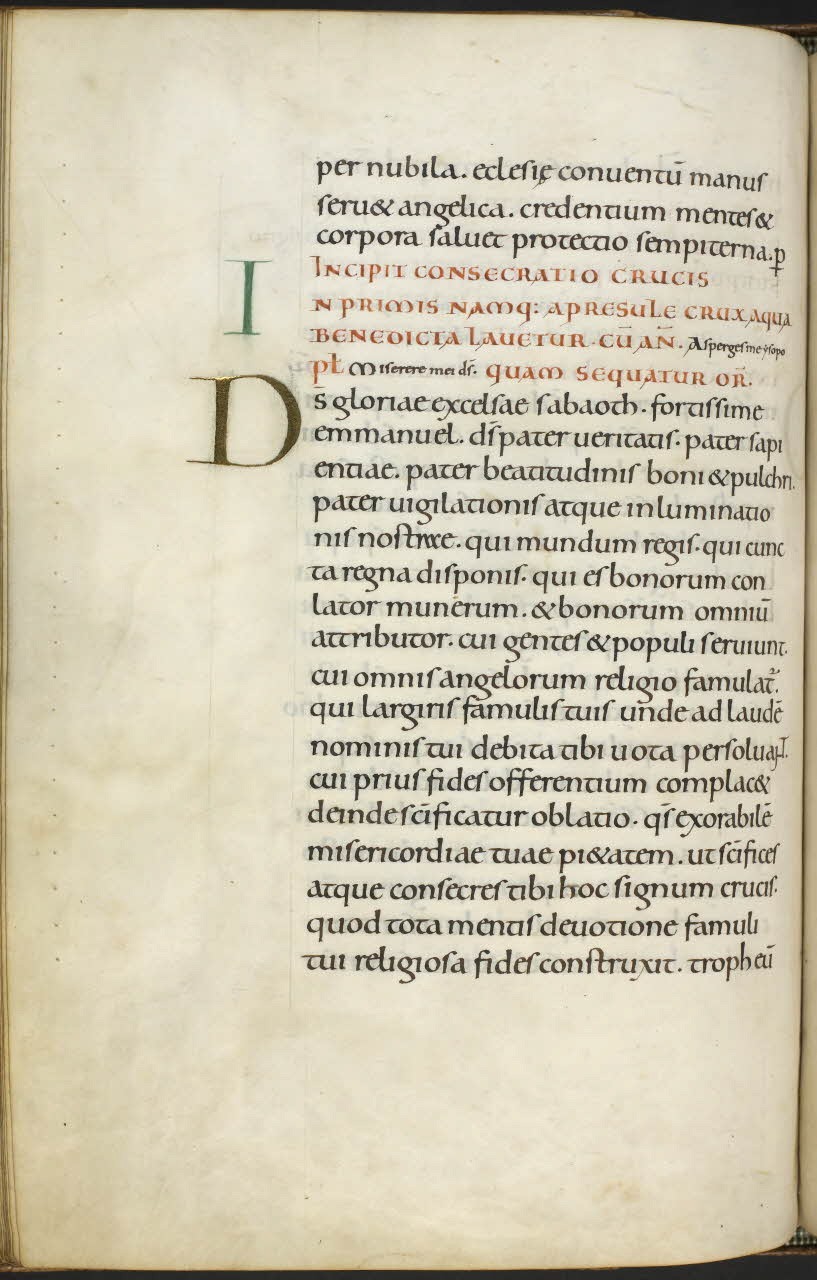 per nubila. eclesię conuentū manus
seru& angelica. credentium mentes&
corpora saluet protectio sempiterna. p̄
INCIPIT CONSECRATIO CRUCIS
IN PRIMIS NAMQ: APRESULE CRUX AQUA
BENEDICTA LAUETUR. CŪ AÑ. Asperges me ysopo
pł. Miserere mei ds̄. QUAM SEQUATUR OR̄.
Ds̄ gloriae excelsae sabaoth. fortissime
emmanuel. ds̄ pater ueritatis. pater sapi
entiae. pater beatitudinis boni & pulchri.
pater uigilationis atque inluminatio
nis nostrae. qui mundum regis. qui cunc
ta regna disponis. qui es bonorum con
lator munerum. & bonorum omniū
attributor. cui gentes & populi seruiunt.
cui omnis angelorum religio famulat̄.
qui largiris famulis tuis unde ad laudē
nominis tui debita tibi uota persoluant.
cui prius fides offerentium complac&
deinde sc̄ificatur oblatio. qs̄ exorabilē
misericordiae tuae pi&atem. ut sc̄ifices
atque consecres tibi hoc signum crucis.
quod tota mentis deuotione famuli
tui religiosa fides construxit. tropheū